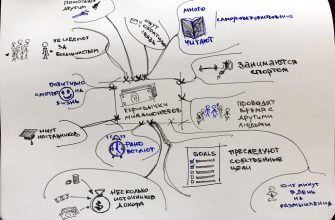 ПОМОГАЮТ
ДРУГИМ
ИЩУТ
ОБРАТНУЮ
СВЯЗЬ
МНОГО
ЧИТАЮТ
НЕ СЛЕДУЮТ
ЗА
БОЛЬШИНСТВОМ
ЗАНИМАЮТСЯ
СПОРТОМ
ПОЗИТИВНО
СМОТРЯТ НА
ЖИЗНЬ
ПРИВЫЧКИ
МИЛЛИОНЕРОВ
ПРОВОДЯТ
ВРЕМЯ С
ДРУГИМИ
ЛЮДЬМИ
ИЩУТ
НАСТАВНИКОВ
РАНО
ВСТАЮТ
GOALS
ПРЕСЛЕДУЮТ
СОБСТВЕННЫЕ
ЦЕЛИ
НЕСКОЛЬКО
ИСТОЧНИКОВ
ДОХОДА
10-15 МИНУТ
В ДЕНЬ
НА
РАЗМЫШЛЕНИЯ